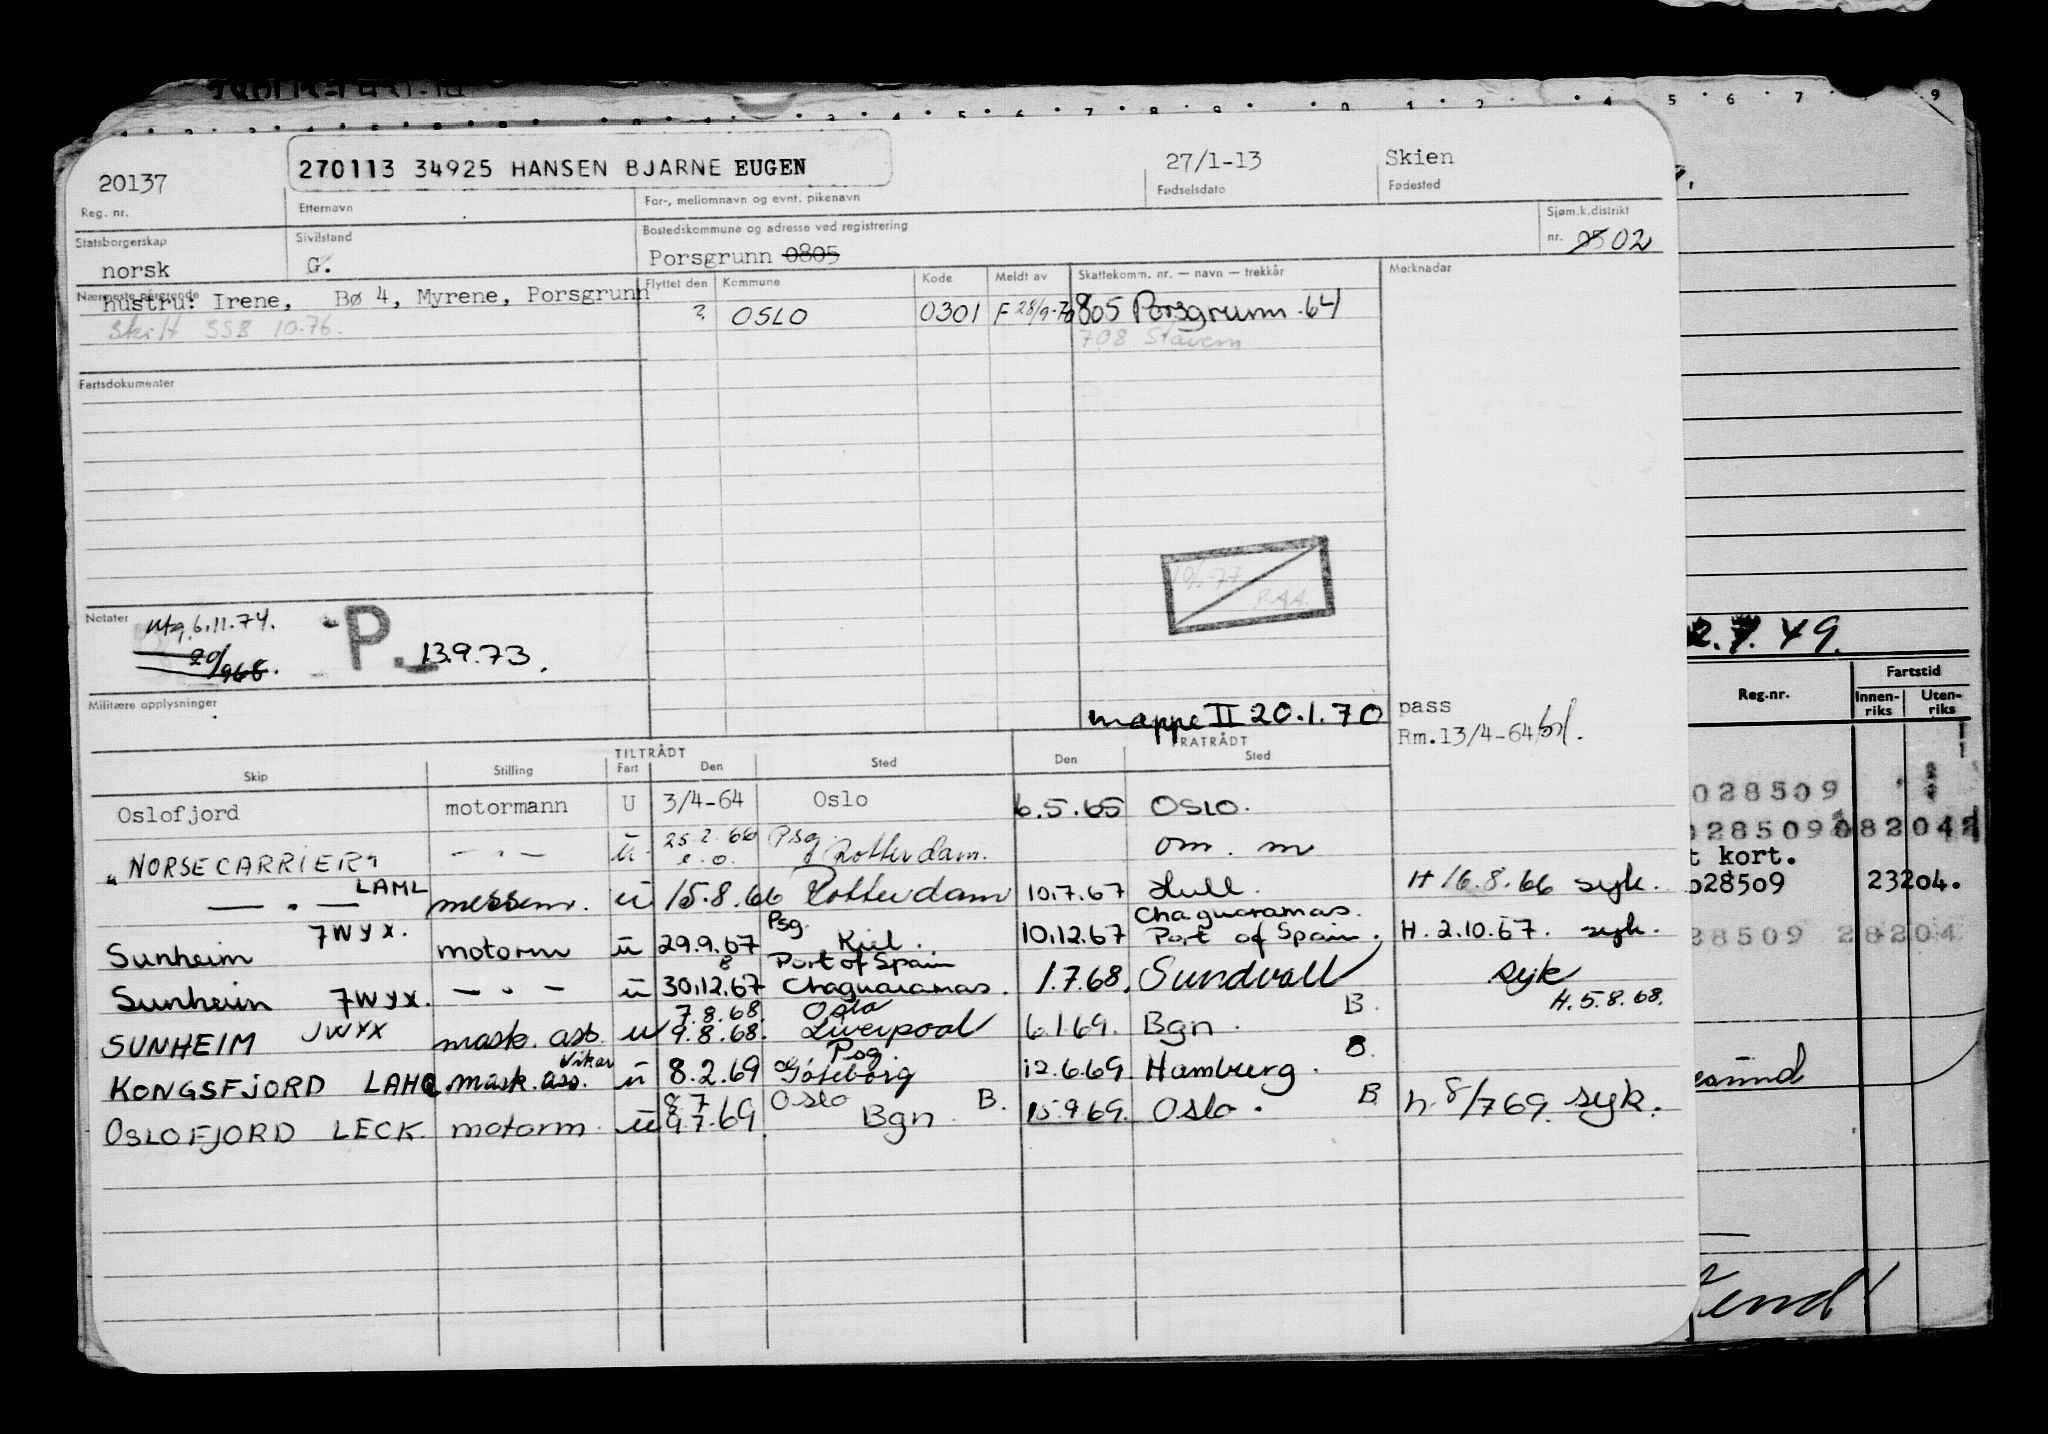 20137
270113 34925 HANSEN BJARNE EUGEN
27/1-13
Skien
Reg. nr.
Etternavn
For-, mellomnavn og evnt. pikenavn
Fødselsdato
Fødested
Statsborgerskap
Sivilstand
Bostedskommune og adresse ved registrering
Sjøm.k.distrikt
norsk
G.
Porsgrunn 0805
nr. 05 02
Nærmeste pårørende
hustru: Irene, Bø 4, Myrene, Porsgrunn
Flyttet den
Kommune
Kode
Meldt av
Skattekomm. nr. — navn — trekkår
Merknader
Skilt SSB 10.76.
? OSLO 0301 F 28/9-70 805 Porsgrunn .64
708 Stavern
Fartsdokumenter
10/1-77
P.AA.
Notater
Utg. 6.11.74.
P. 13.9.73.
20/968.
Militære opplysninger
mappe II 20.1.70
pass
Rm.13/4-64
TILTRÅDT
FRATRÅDT
Skip
Stilling
Fart
Den
Sted
Den
Sted
Oslofjord motormann U 3/4-64 Oslo 6.5.65 OSLO.
25.2.66 Psg.
"NORSECARRIER" — " — u e.o. Rotterdam. om. m
LAML
— " — messem. u 15.8.66 Rotterdam 10.7.67 Hull. H 16.8.66 syk.
7WYX. Psg. Chaguaramas.
Sunheim motorm u 29.9.67 Kiel. 10.12.67 Port of Spain. H. 2.10.67. syk.
Port of Spain
Sunheim 7WYX. — " — u 30.12.67 Chaguaramas. 1.7.68. Sundvall syk
7.8.68. Oslo B. H. 5.8.68.
SUNHEIM JWYX mask. ass. u 9.8.68. Liverpool 6.1.69. Bgn.
vikar Psg. B.
KONGSFJORD LAHQ mask. ass. u 8.2.69 Göteborg 12.6.69. Hamburg.
8.7 Oslo B. B
OSLOFJORD LECK. motorm. u 9.7.69. Bgn 15.9.69. Oslo. h. 8/7 69. syk.
2.7.49.
Reg.nr.
Fartstid
Innen-
riks
Uten-
riks
028509
028509 082042
t kort.
028509 23204.
28509 28204